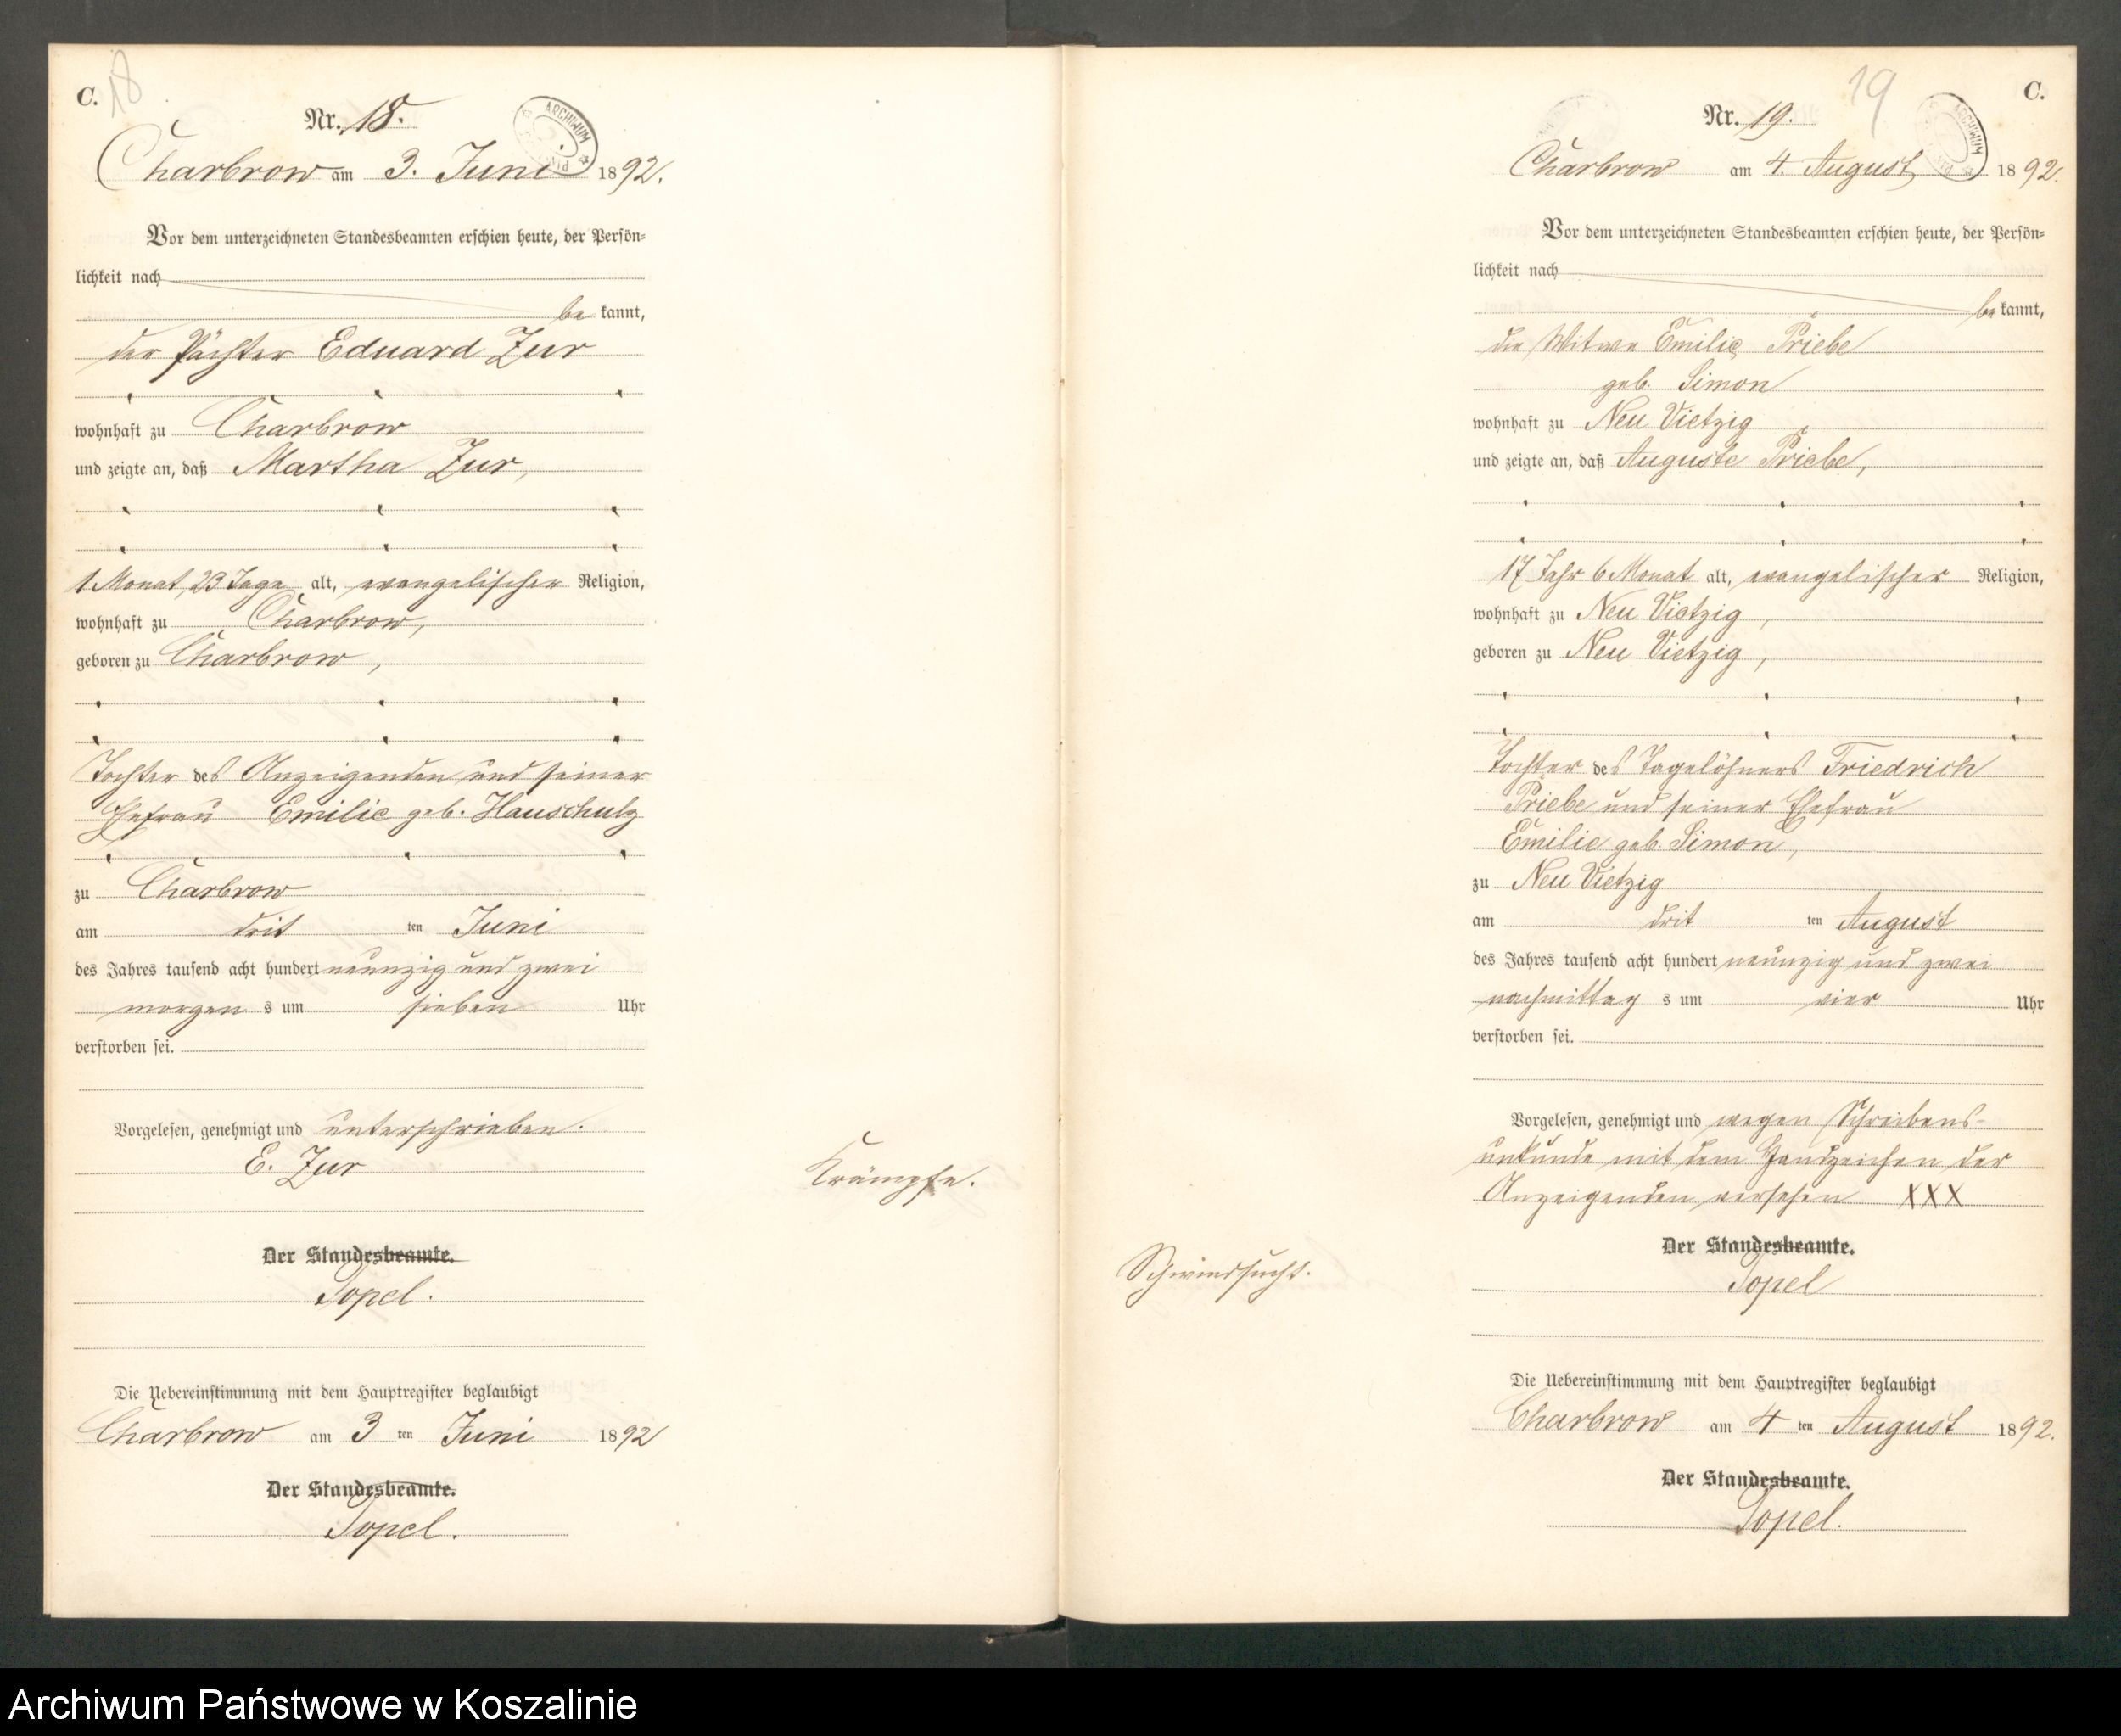 C.
18
Nr. 18.
ARCHIWUM
Charbrow am 3. Juni 1892.
Vor dem unterzeichneten Standesbeamten erschien heute, der Persön=
lichkeit nach
be kannt,
der Pächter Eduard Zur
wohnhaft zu Charbrow
und zeigte an, daß Martha Zur,
1 Monat, 23 Tage alt, evangelischer Religion,
wohnhaft zu Charbrow,
geboren zu Charbrow,
Tochter des Anzeigenden und seiner
Ehefrau Emilie geb. Hauschulz
zu Charbrow
am drit ten Juni
des Jahres tausend acht hundert neunzig und zwei
morgen s um sieben Uhr
verstorben sei.
Vorgelesen, genehmigt und unterschrieben.
E. Zur
Krämpfe.
Der Standesbeamte.
Topel.
Die Uebereinstimmung mit dem Hauptregister beglaubigt
Charbrow am 3 ten Juni 1892
Der Standesbeamte.
Topel.
19
C.
Nr. 19.
ARCHIWUM
Charbrow am 4. August 1892.
Vor dem unterzeichneten Standesbeamten erschien heute, der Persön=
lichkeit nach
be kannt,
die Witwe Emilie Priebe
geb. Simon
wohnhaft zu Neu Vietzig
und zeigte an, daß Auguste Priebe,
17 Jahr 6 Monat alt, evangelischer Religion,
wohnhaft zu Neu Vietzig,
geboren zu Neu Vietzig,
Tochter des Tagelöhners Friedrich
Priebe und seiner Ehefrau
Emilie geb. Simon,
zu Neu Vietzig
am drit ten August
des Jahres tausend acht hundert neunzig und zwei
nachmittag s um vier Uhr
verstorben sei.
Vorgelesen, genehmigt und wegen Schreibens-
unkunde mit dem Handzeichen der
Anzeigenden versehen XXX
Schwindsucht.
Der Standesbeamte.
Topel
Die Uebereinstimmung mit dem Hauptregister beglaubigt
Charbrow am 4 ten August 1892.
Der Standesbeamte.
Topel.
Archiwum Państwowe w Koszalinie